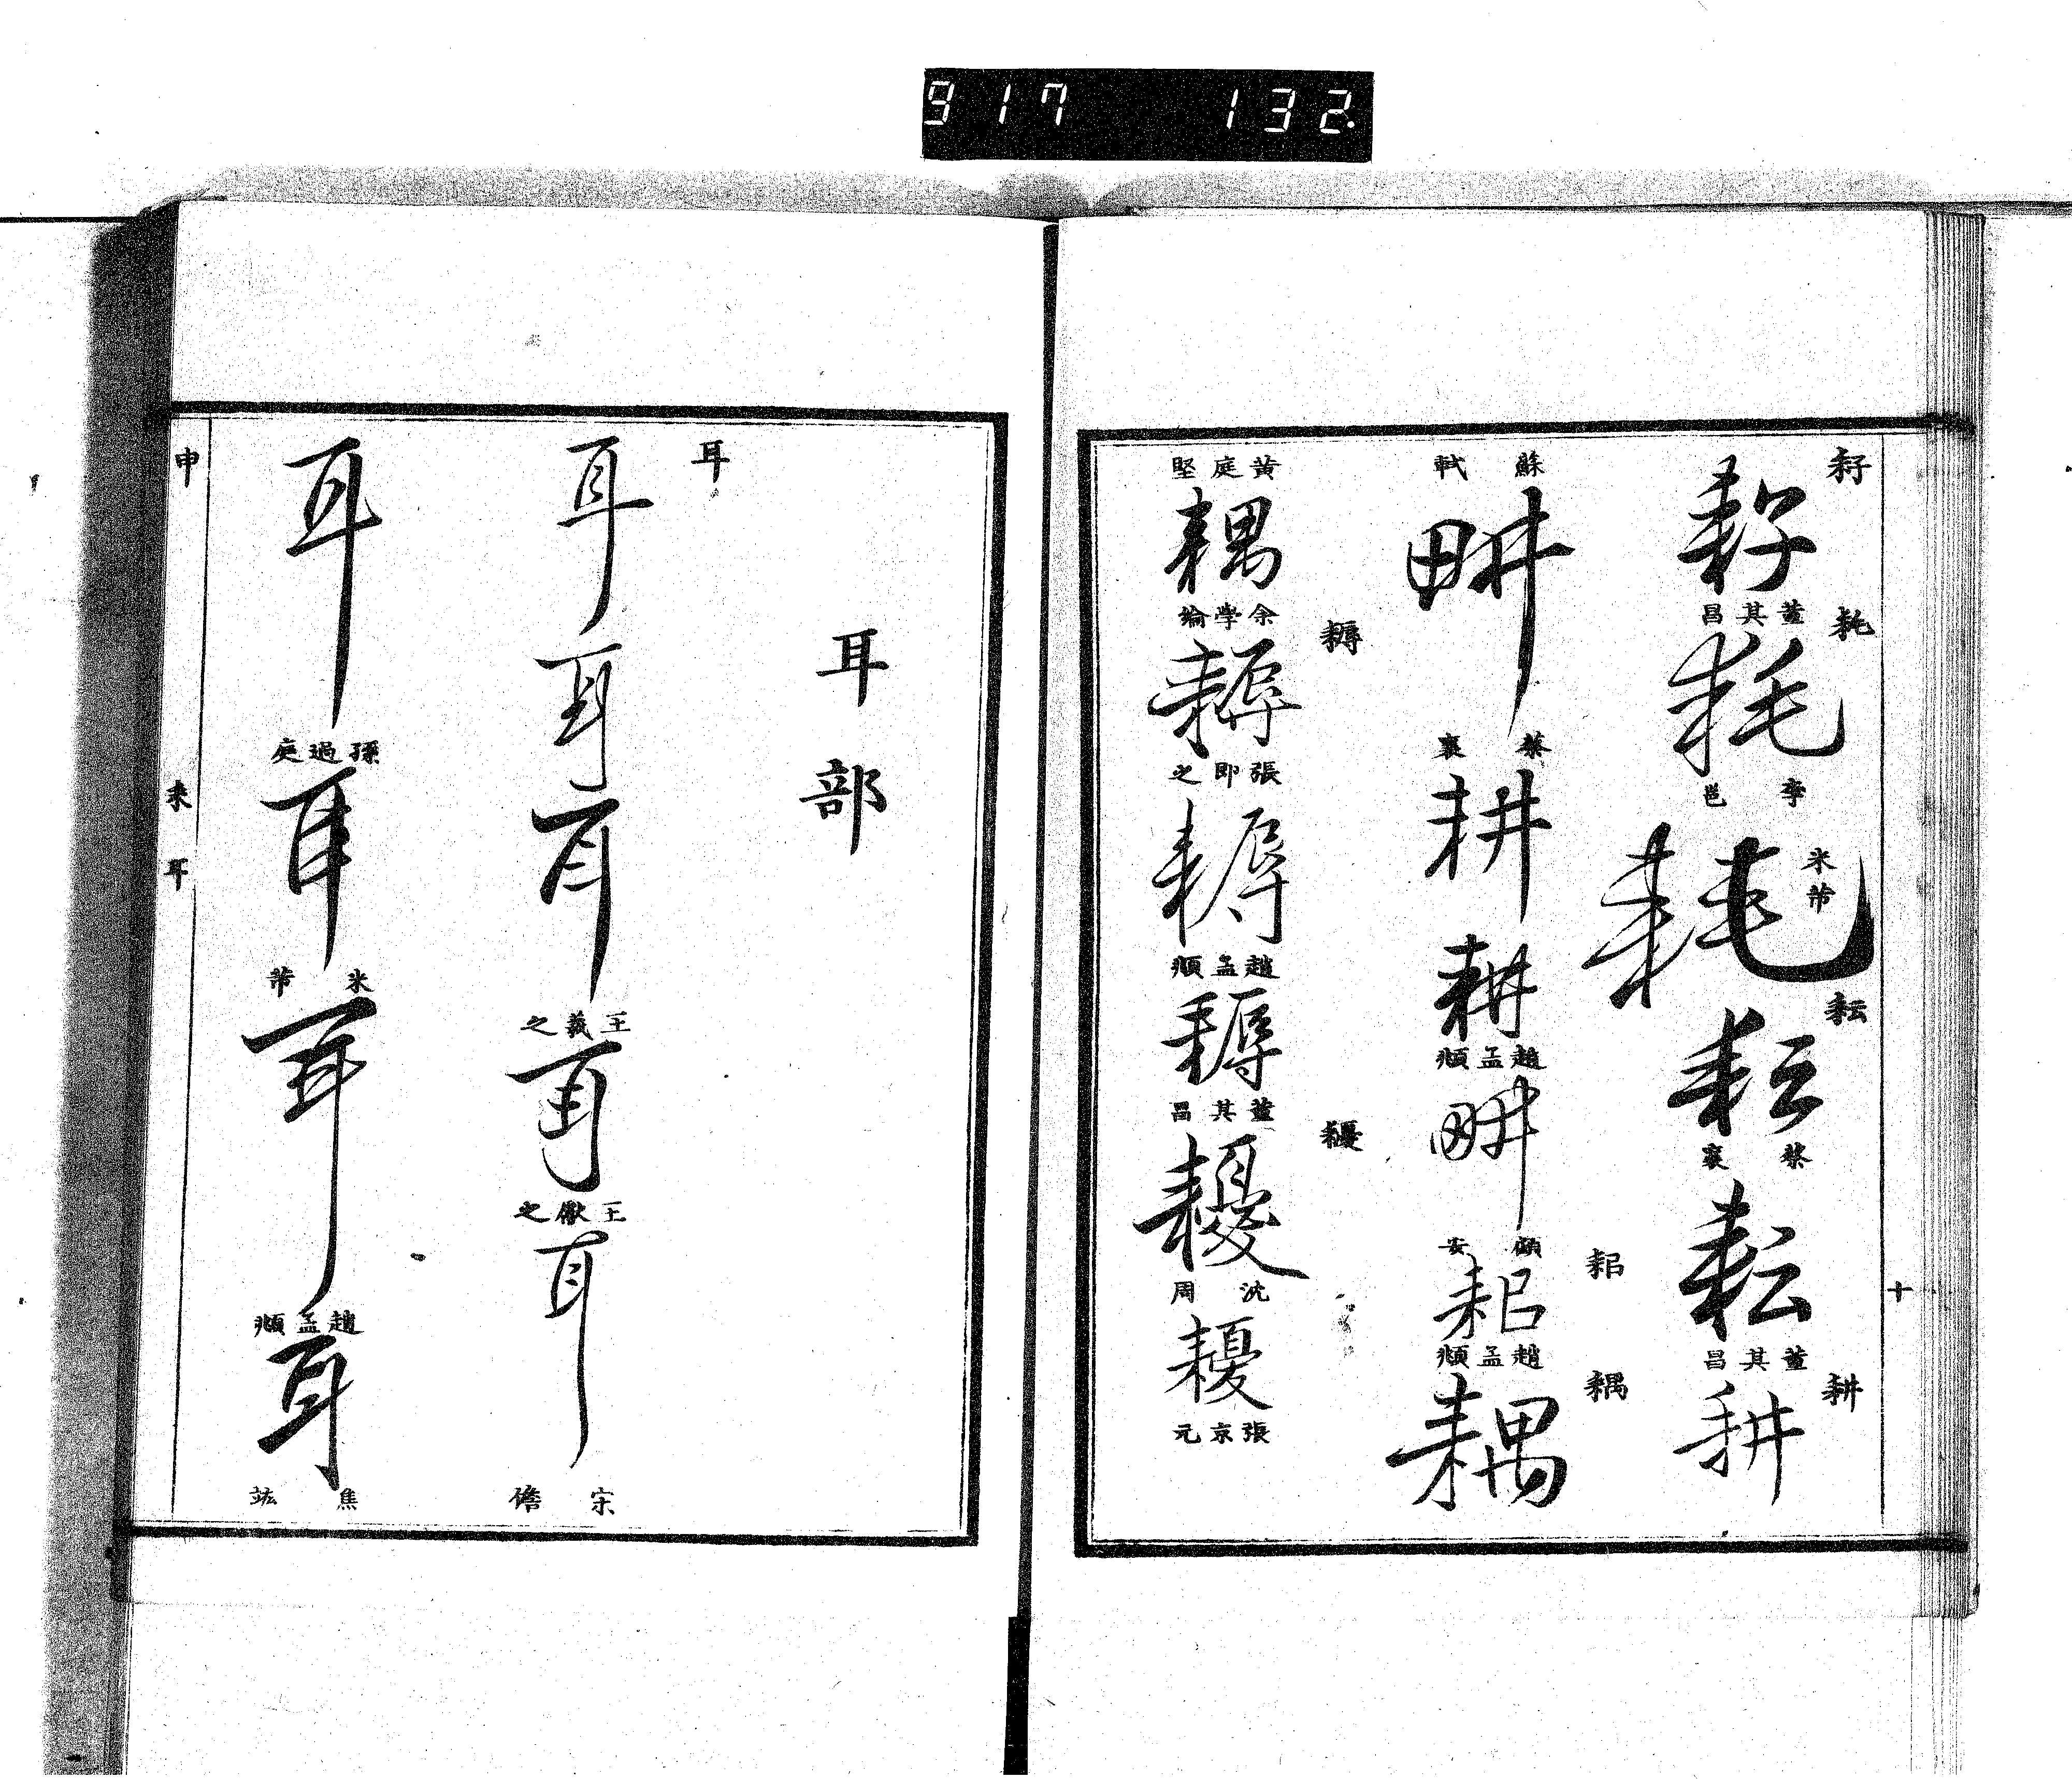 917 132
耔
耔
董其昌
耗
耗
李邕
耗
米芾
耘
耘
蔡襄
耘
董其昌
耕
耕
蘇軾
畊
蔡襄
耕
耕
趙孟頫
畊
顧安
耜
耜
趙孟頫
耦
耦
黄庭堅
耦
余學綸
耨
耨
張即之
耨
趙孟頫
耨
董其昌
耰
耰
沈周
耰
張京元
十
耳部
耳
耳
耳
耳
王羲之
耳
王獻之
耳
宋儋
耳
孫過庭
耳
米芾
耳
趙孟頫
耳
焦竑
申
耒
耳